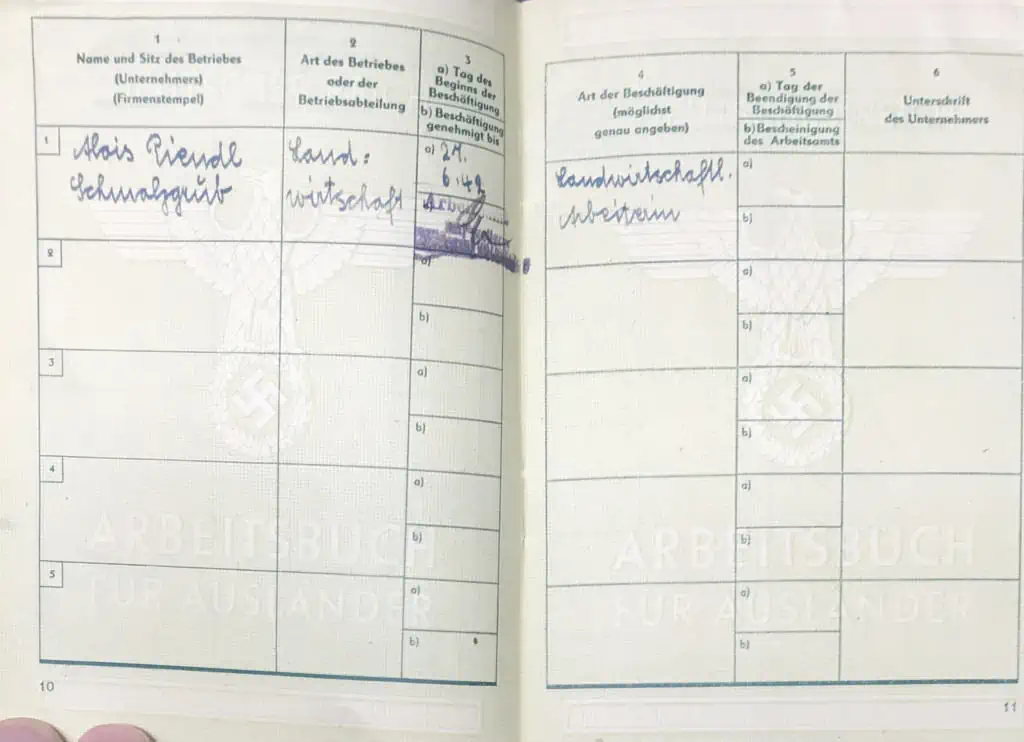 1
Name und Sitz des Betriebes
(Unternehmers)
(Firmenstempel)
2
Art des Betriebes
oder der
Betriebsabteilung
3
a) Tag des
Beginns der
Beschäftigung
b) Beschäftigung
genehmigt bis
4
Art der Beschäftigung
(möglichst
genau angeben)
5
a) Tag der
Beendigung der
Beschäftigung
b) Bescheinigung
des Arbeitsamts
6
Unterschrift
des Unternehmers
1
Alois Piendl
Schmalzgrub
Land=
wirtschaft
a) 27.
6.42
Landwirtschaftl.
Arbeiterin
a)
b)
2
a)
b)
a)
b)
3
a)
b)
a)
b)
4
a)
b)
a)
b)
5
a)
b)
a)
b)
ARBEITSBUCH
FÜR AUSLÄNDER
ARBEITSBUCH
FÜR AUSLÄNDER
10
11